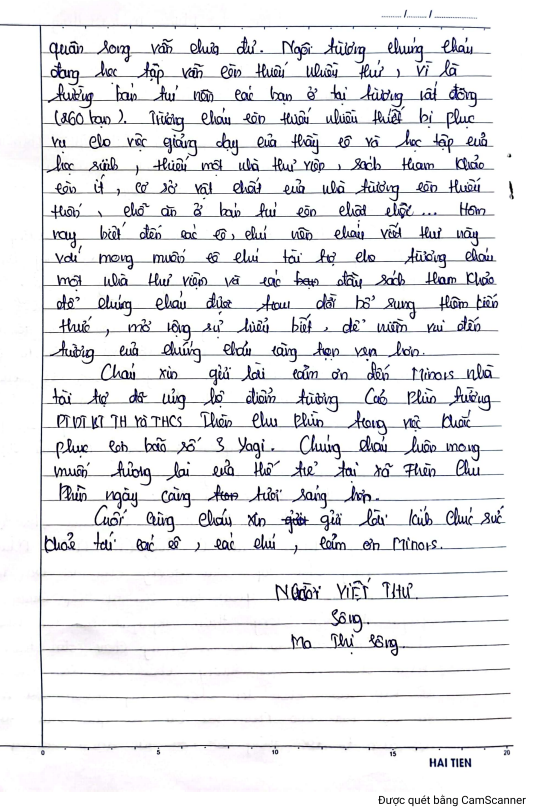 ....../....../............
quần song vẫn chưa đủ. Ngôi trường chúng cháu
đang học tập vẫn còn thiếu nhiều thứ, vì là
trường bán trú nên các bạn ở tại trường rất đông
(260 bạn). Trường cháu còn thiếu nhiều thiết bị phục
vụ cho việc giảng dạy của thầy cô và học tập của
học sinh, thiếu một nhà thư viện, sách tham khảo
còn ít, cơ sở vật chất của nhà trường còn thiếu
thốn, chỗ ăn ở bán trú còn chật chội... Hôm
nay biết đến các cô, chú nên cháu viết thư này
với mong muốn cô chú tài trợ cho trường cháu
một nhà thư viện và các đầy sách tham khảo
để chúng cháu được trau dồi bổ sung thêm kiến
thức, mở rộng sự hiểu biết, để niềm vui đến
trường của chúng cháu càng trọn vẹn hơn.
Cháu xin gửi lời cảm ơn đến Minors nhà
tài trợ đã ủng hộ điểm trường Phìn trường
PTDTBT TH Và THCS Thèn Chu Phìn trong việc khắc
phục cơn bão số 3 Yagi. Chúng cháu luôn mong
muốn tương lai của thế trẻ tại xã Thèn Chu
Phìn ngày càng tươi sáng hơn.
Cuối cùng cháu xin gửi lời kính chúc sức
khoẻ tới các cô, các chú, cảm ơn Minors.
NGƯỜI VIẾT THƯ
Sông.
Ma Thị Sông.
0 5 10 15 20
HẢI TIẾN
Được quét bằng CamScanner